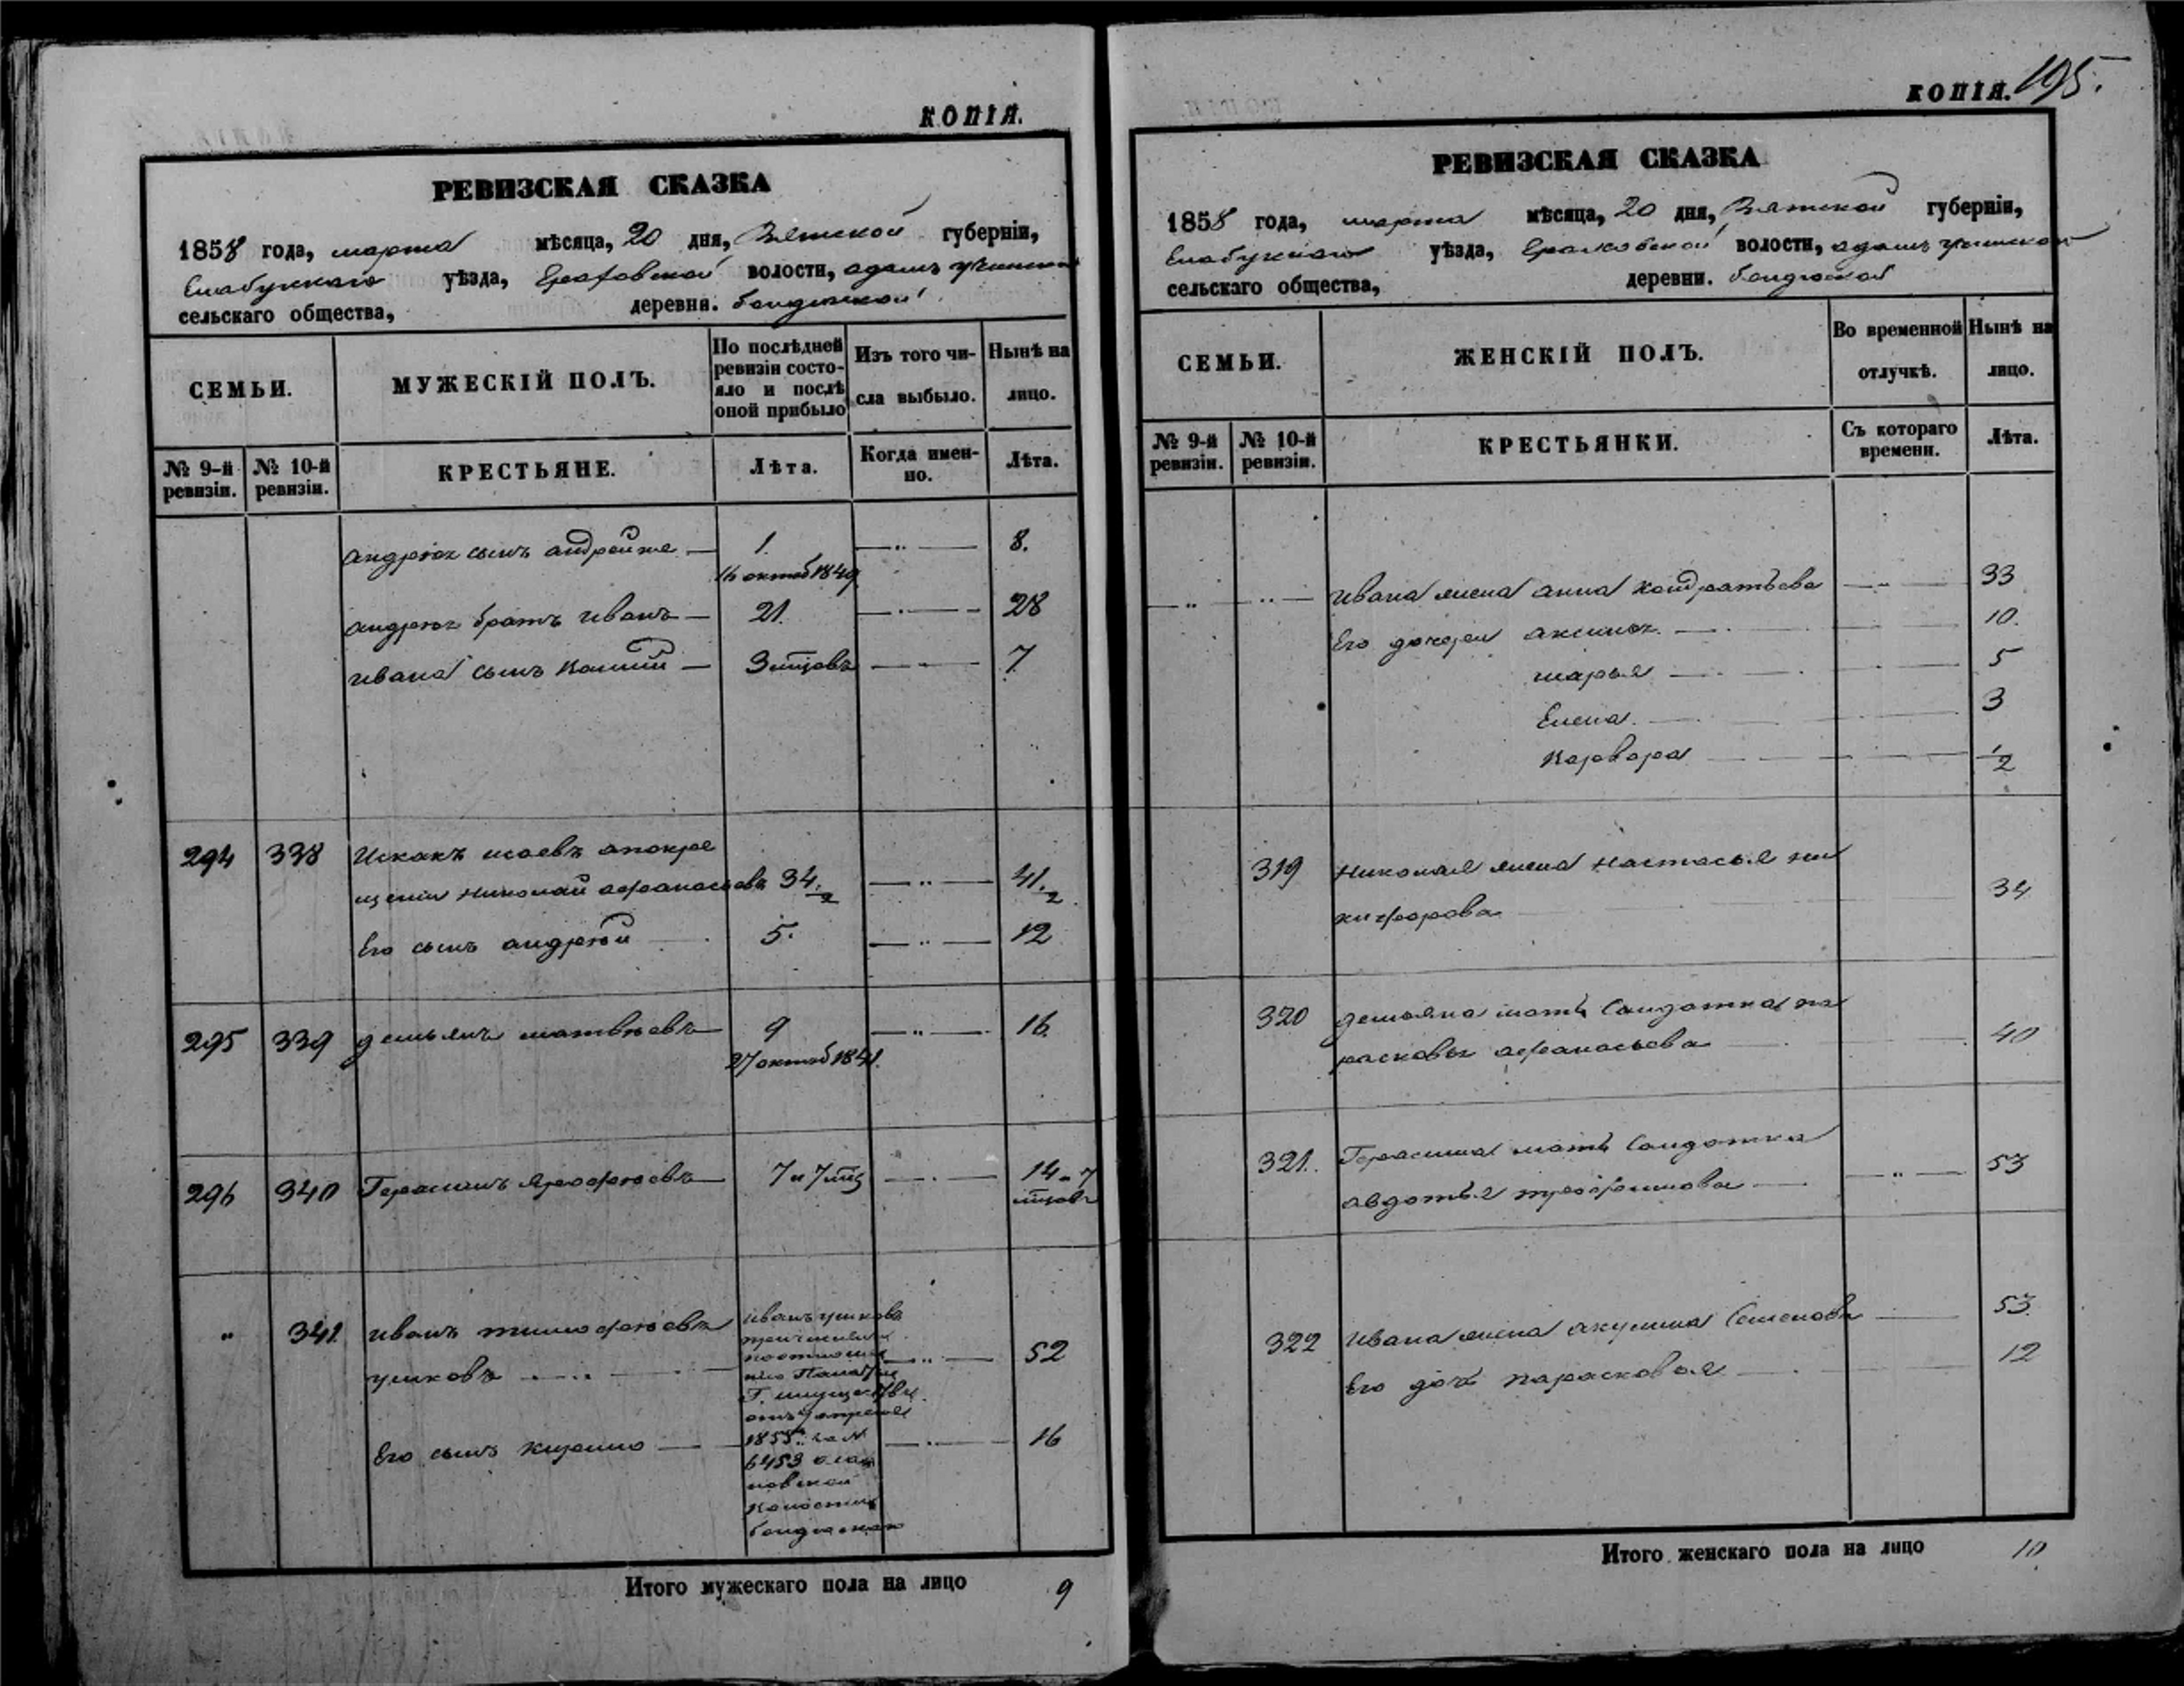 КОПІЯ.
РЕВИЗСКАЯ СКАЗКА
1858 года, марта мѣсяца, 20 дня, Вятской губерніи,
Елабужскаго уѣзда, волости,
сельскаго общества, деревни.
СЕМЬИ.
МУЖЕСКІЙ ПОЛЪ.
По послѣдней ревизіи состояло и послѣ оной прибыло
Изъ того числа выбыло.
Нынѣ на лицо.
№ 9-й ревизіи.
№ 10-й ревизіи.
КРЕСТЬЯНЕ.
Лѣта.
Когда именно.
Лѣта.
Андрея сынъ Андрей же — 1. —„— 8.
16 октяб 1849
Андрея братъ Иванъ — 21. —„— 28
Ивана сынъ — 3 мцовъ —„— 7
294 338 Искакъ Исаевъ
Николай Афанасьевъ 34 1/2 —„— 41 1/2
Его сынъ Андрей — 5. —„— 12
295 339 Демьянъ Матвѣевъ 9 —„— 16.
27 октяб 1841.
296 340 Герасимъ Ярофѣевъ — 7 и 7 мц —„— 14 и 7
мцовъ
„ 341. Иванъ Тимофѣевъ Иванъ Ушковъ
Ушковъ —„— 52
Г. имуществъ
1855 г. за №
6453
Его сынъ —„— 16
Итого мужескаго пола на лицо 9
КОПІЯ. 195.
РЕВИЗСКАЯ СКАЗКА
1858 года, марта мѣсяца, 20 дня, Вятской губерніи,
Елабужскаго уѣзда, волости,
сельскаго общества, деревни.
СЕМЬИ.
ЖЕНСКІЙ ПОЛЪ.
Во временной отлучкѣ.
Нынѣ на лицо.
№ 9-й ревизіи.
№ 10-й ревизіи.
КРЕСТЬЯНКИ.
Съ котораго времени.
Лѣта.
—„— —„— Ивана жена Анна Кондратьева —„— 33
Его дочери Аксинья — 10.
Марья — 5
Елена. — 3
Варвара — 1/2
319 Николая жена Настасья Ни
кифорова 34
320 Демьяна мать Салдатка Па
расковья Афанасьева — 40
321. Герасима мать Салдатка
Авдотья Трофимова —„— 53
322 Ивана жена Акулина Семенова — 53.
Его дочь Парасковья — 12
Итого женскаго пола на лицо 10